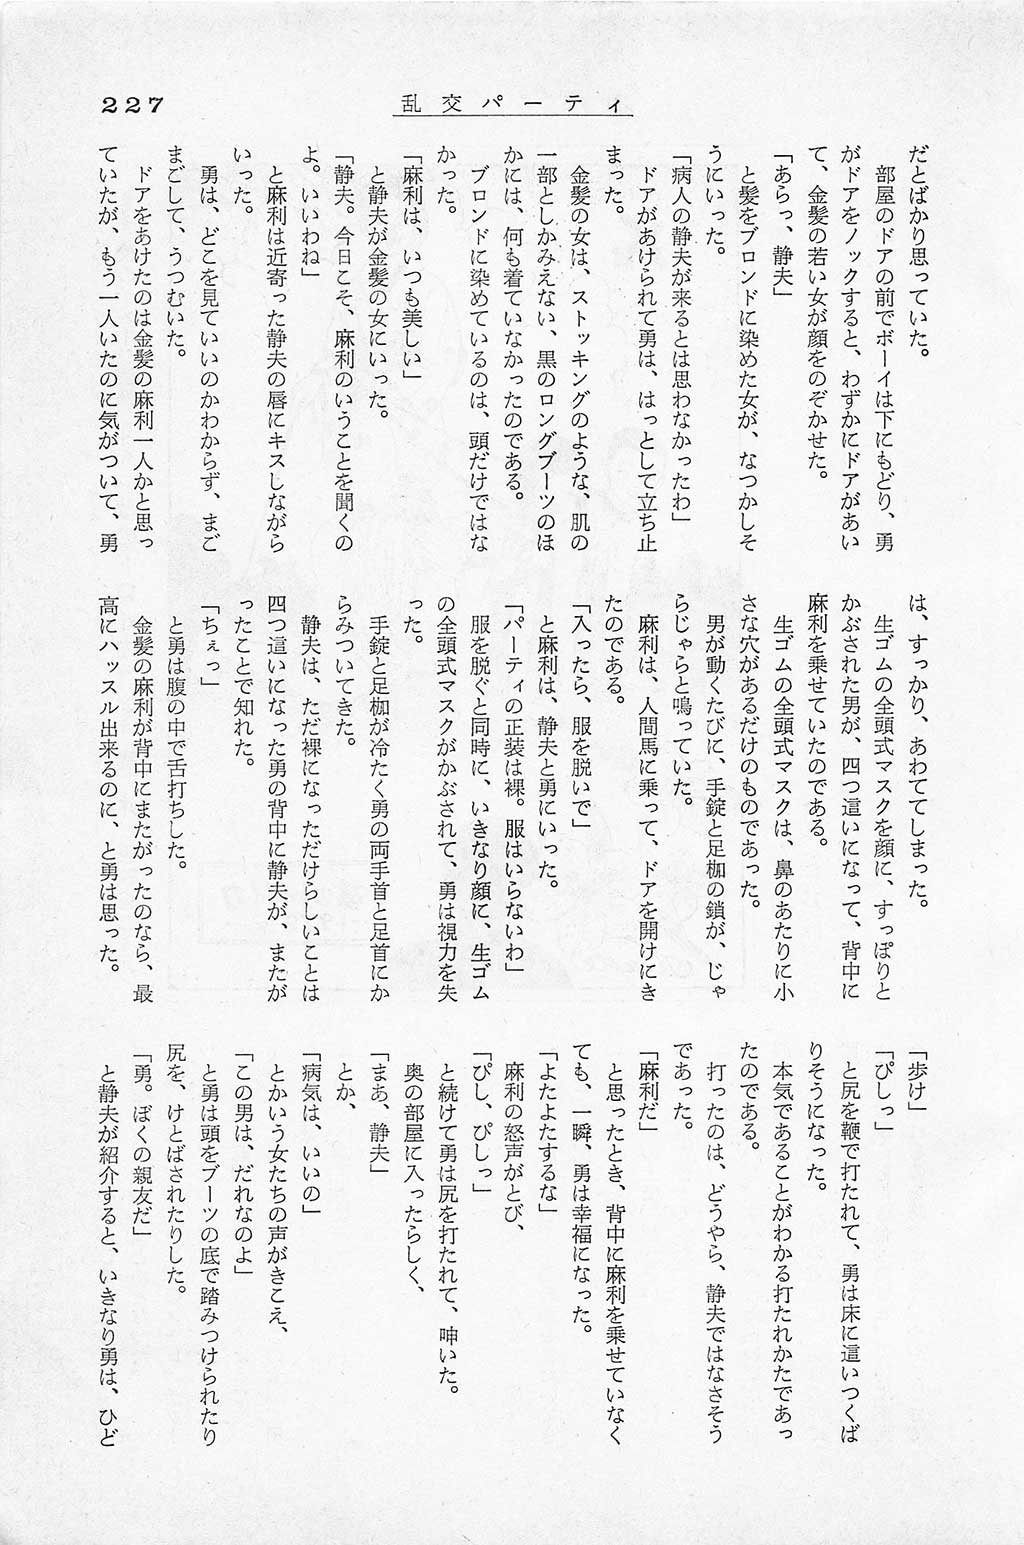 227
乱交パーティ
だとばかり思っていた。
部屋のドアの前でボーイは下にもどり、勇
がドアをノックすると、わずかにドアがあい
て、金髪の若い女が顔をのぞかせた。
「あらっ、静夫」
と髪をブロンドに染めた女が、なつかしそ
うにいった。
「病人の静夫が来るとは思わなかったわ」
ドアがあけられて勇は、はっとして立ち止
まった。
金髪の女は、ストッキングのような、肌の
一部としかみえない、黒のロングブーツのほ
かには、何も着ていなかったのである。
ブロンドに染めているのは、頭だけではな
かった。
「麻利は、いつも美しい」
と静夫が金髪の女にいった。
「静夫。今日こそ、麻利のいうことを聞くの
よ。いいわね」
と麻利は近寄った静夫の唇にキスしながら
いった。
勇は、どこを見ていいのかわからず、まご
まごして、うつむいた。
ドアをあけたのは金髪の麻利一人かと思っ
ていたが、もう一人いたのに気がついて、勇
は、すっかり、あわててしまった。
生ゴムの全頭式マスクを顔に、すっぽりと
かぶされた男が、四つ這いになって、背中に
麻利を乗せていたのである。
生ゴムの全頭式マスクは、鼻のあたりに小
さな穴があるだけのものであった。
男が動くたびに、手錠と足枷の鎖が、じゃ
らじゃらと鳴っていた。
麻利は、人間馬に乗って、ドアを開けにき
たのである。
「入ったら、服を脱いで」
と麻利は、静夫と勇にいった。
「パーティの正装は裸。服はいらないわ」
服を脱ぐと同時に、いきなり顔に、生ゴム
の全頭式マスクがかぶされて、勇は視力を失
った。
手錠と足枷が冷たく勇の両手首と足首にか
らみついてきた。
静夫は、ただ裸になっただけらしいことは
四つ這いになった勇の背中に静夫が、またが
ったことで知れた。
「ちぇっ」
と勇は腹の中で舌打ちした。
金髪の麻利が背中にまたがったのなら、最
高にハッスル出来るのに、と勇は思った。
「歩け」
「ぴしっ」
と尻を鞭で打たれて、勇は床に這いつくば
りそうになった。
本気であることがわかる打たれかたであっ
たのである。
打ったのは、どうやら、静夫ではなさそう
であった。
「麻利だ」
と思ったとき、背中に麻利を乗せていなく
ても、一瞬、勇は幸福になった。
「よたよたするな」
麻利の怒声がとび、
「ぴし、ぴしっ」
と続けて勇は尻を打たれて、呻いた。
奥の部屋に入ったらしく、
「まあ、静夫」
とか、
「病気は、いいの」
とかいう女たちの声がきこえ、
「この男は、だれなのよ」
と勇は頭をブーツの底で踏みつけられたり
尻を、けとばされたりした。
「勇。ぼくの親友だ」
と静夫が紹介すると、いきなり勇は、ひど